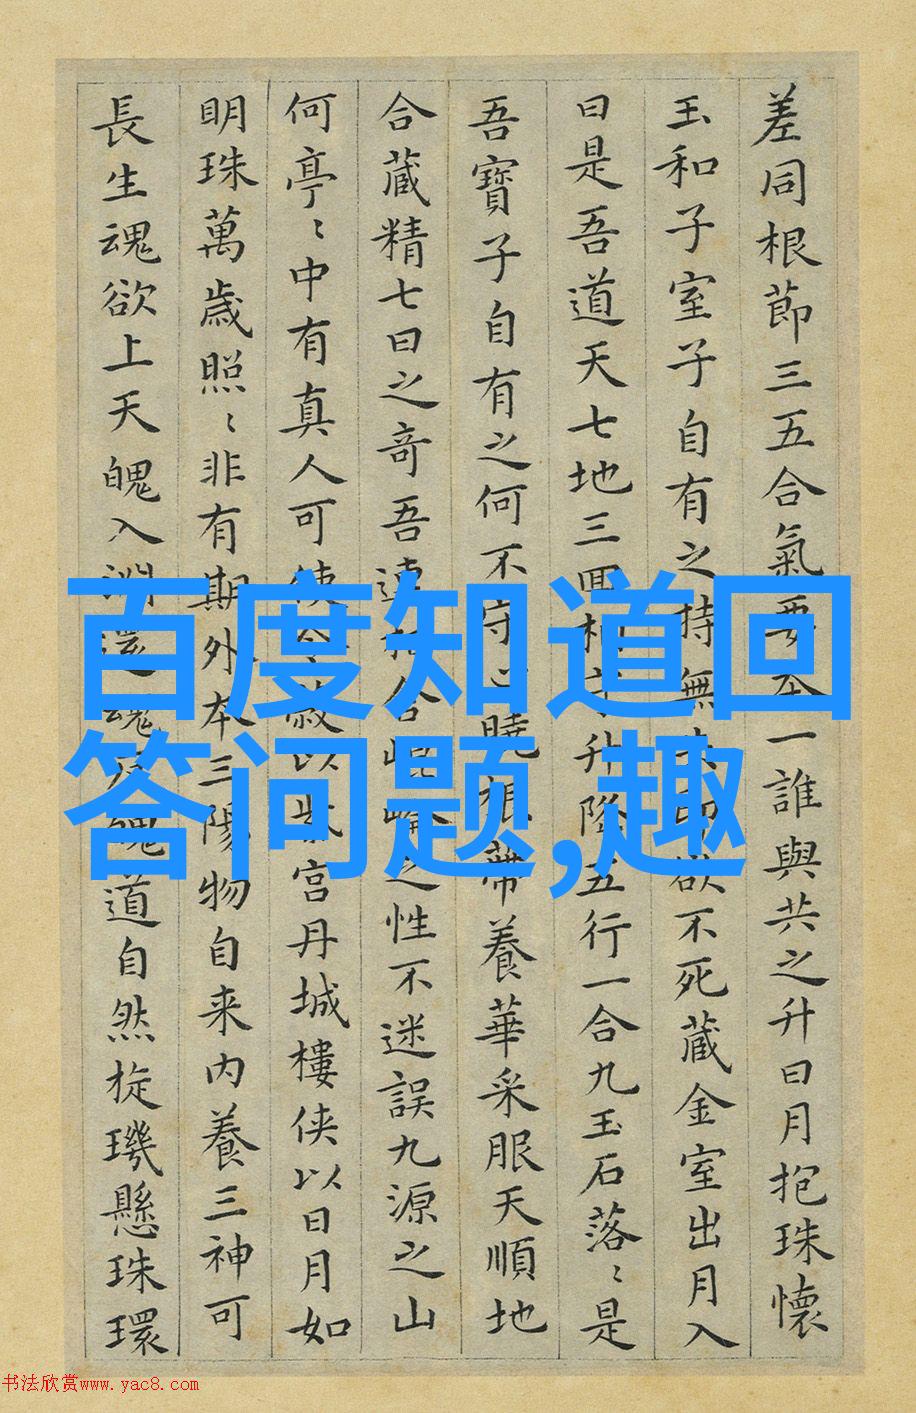 差同根節三五合氣要本一誰與共之升日月抱珠懷
玉和子室子自有之持無失即欲不死藏金室出月入
日是吾道天七地三回相守升降五行一合九玉石落〻是
吾寶子自有之何不守心曉根蒂養華采服天順地
合藏精七日之奇吾連相合崐崘之性不迷誤九源之山
何亭〻中有真人可使令蔽以紫宮丹城樓俠以日月如
明珠萬歲照〻非有期外本三陽物自来内養三神可
長生魂欲上天魄入淵還魂反魄道自然旋璣懸珠環
百度知道回
答问题,趣
书法欣赏www.yac8.com